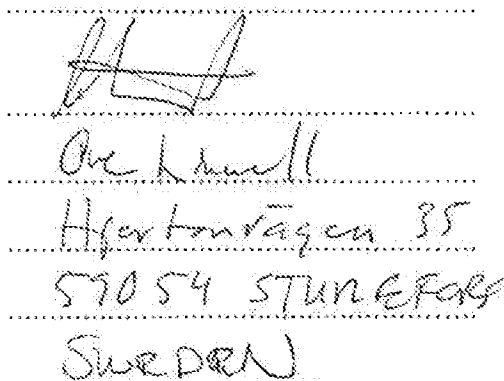 Ove
Hjortonvägen 35
59054 STUREFORS
SWEDEN